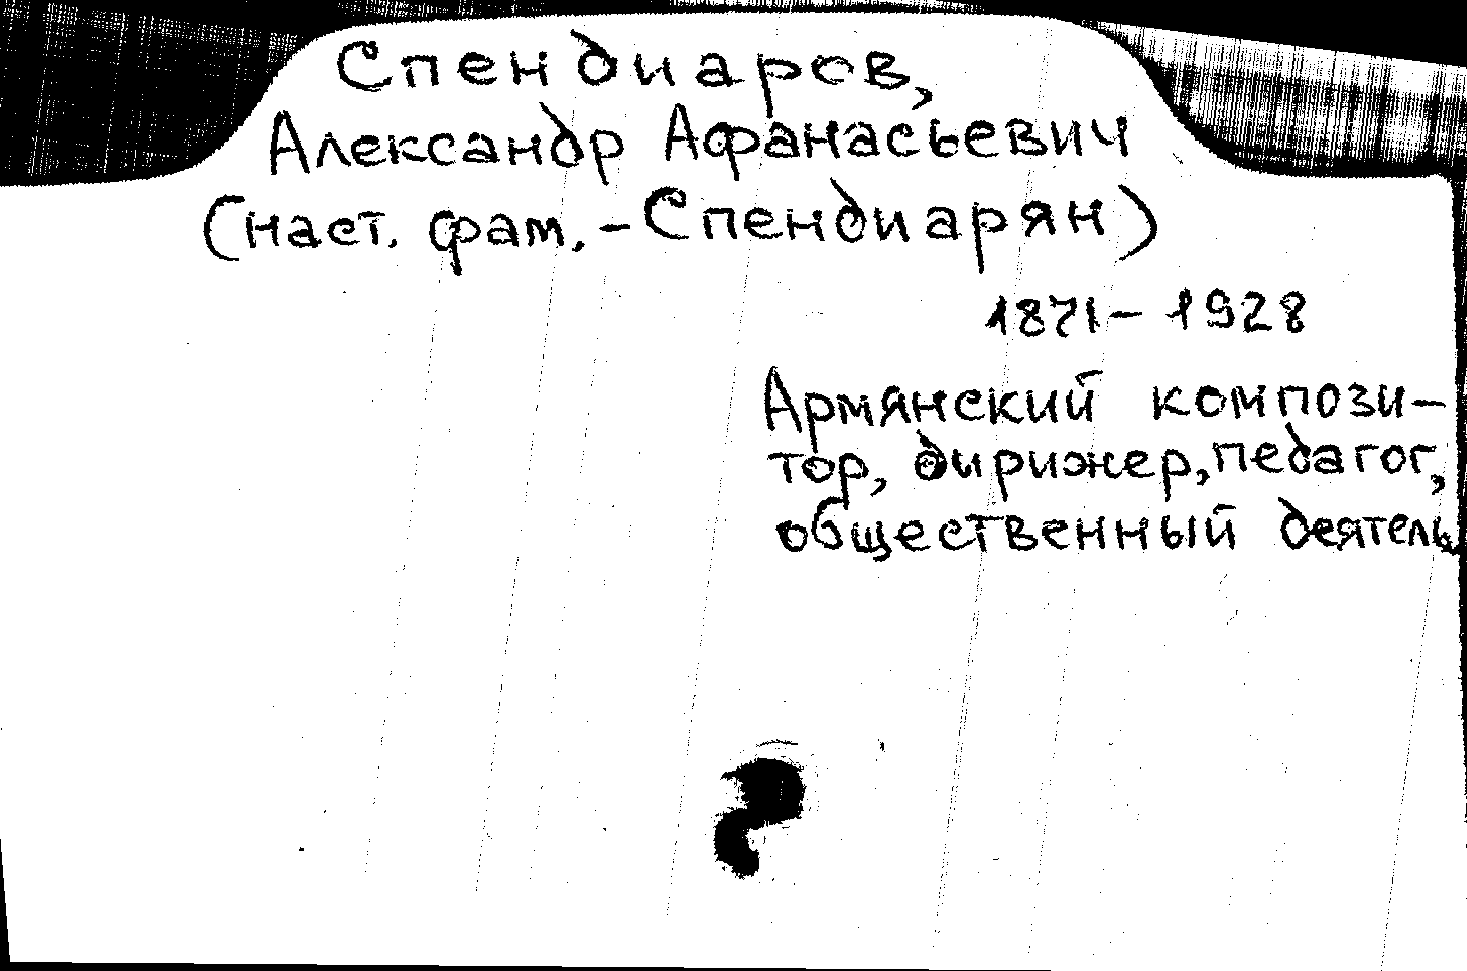 Спендиаров,
Александр Афанасьевич
(наст. фам. - Спендиарян)
1871 - 1928
Армянский компози-
тор, дирижер, педагог,
общественный деятель